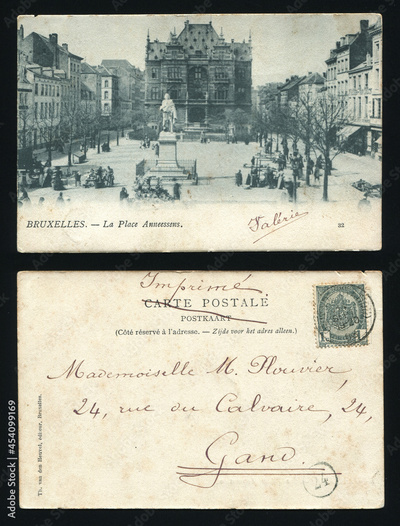 BRUXELLES. — La Place Anneessens.
Valérie
32
Imprimé
CARTE POSTALE
POSTKAART
(Côté réservé à l'adresse. — Zijde voor het adres alleen.)
Mademoiselle M. Plouvier,
24, rue du Calvaire, 24,
Gand.
24
Th. van den Heuvel, éditeur, Bruxelles.
Adobe Stock | #454099169
Adobe Stock